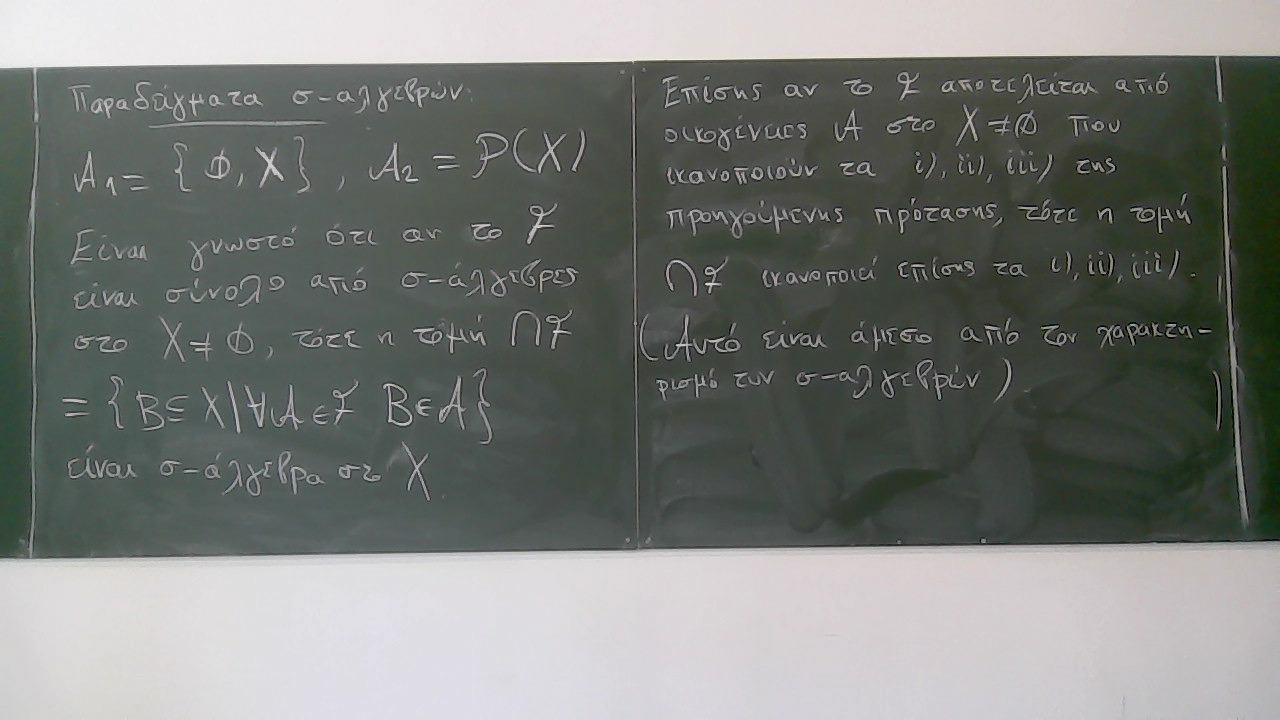 Παραδείγματα σ-αλγεβρών:
A₁ = {∅, X}, A₂ = P(X)
Είναι γνωστό ότι αν το F
είναι σύνολο από σ-άλγεβρες
στο X ≠ ∅, τότε η τομή ∩F
= {B ⊆ X | ∀A ∈ F B ∈ A}
είναι σ-άλγεβρα στο X
Επίσης αν το F αποτελείται από
οικογένειες A στο X ≠ ∅ που
ικανοποιούν τα i), ii), iii) της
προηγούμενης πρότασης, τότε η τομή
∩F ικανοποιεί επίσης τα i), ii), iii).
(Αυτό είναι άμεσο από τον χαρακτη-
ρισμό των σ-αλγεβρών).